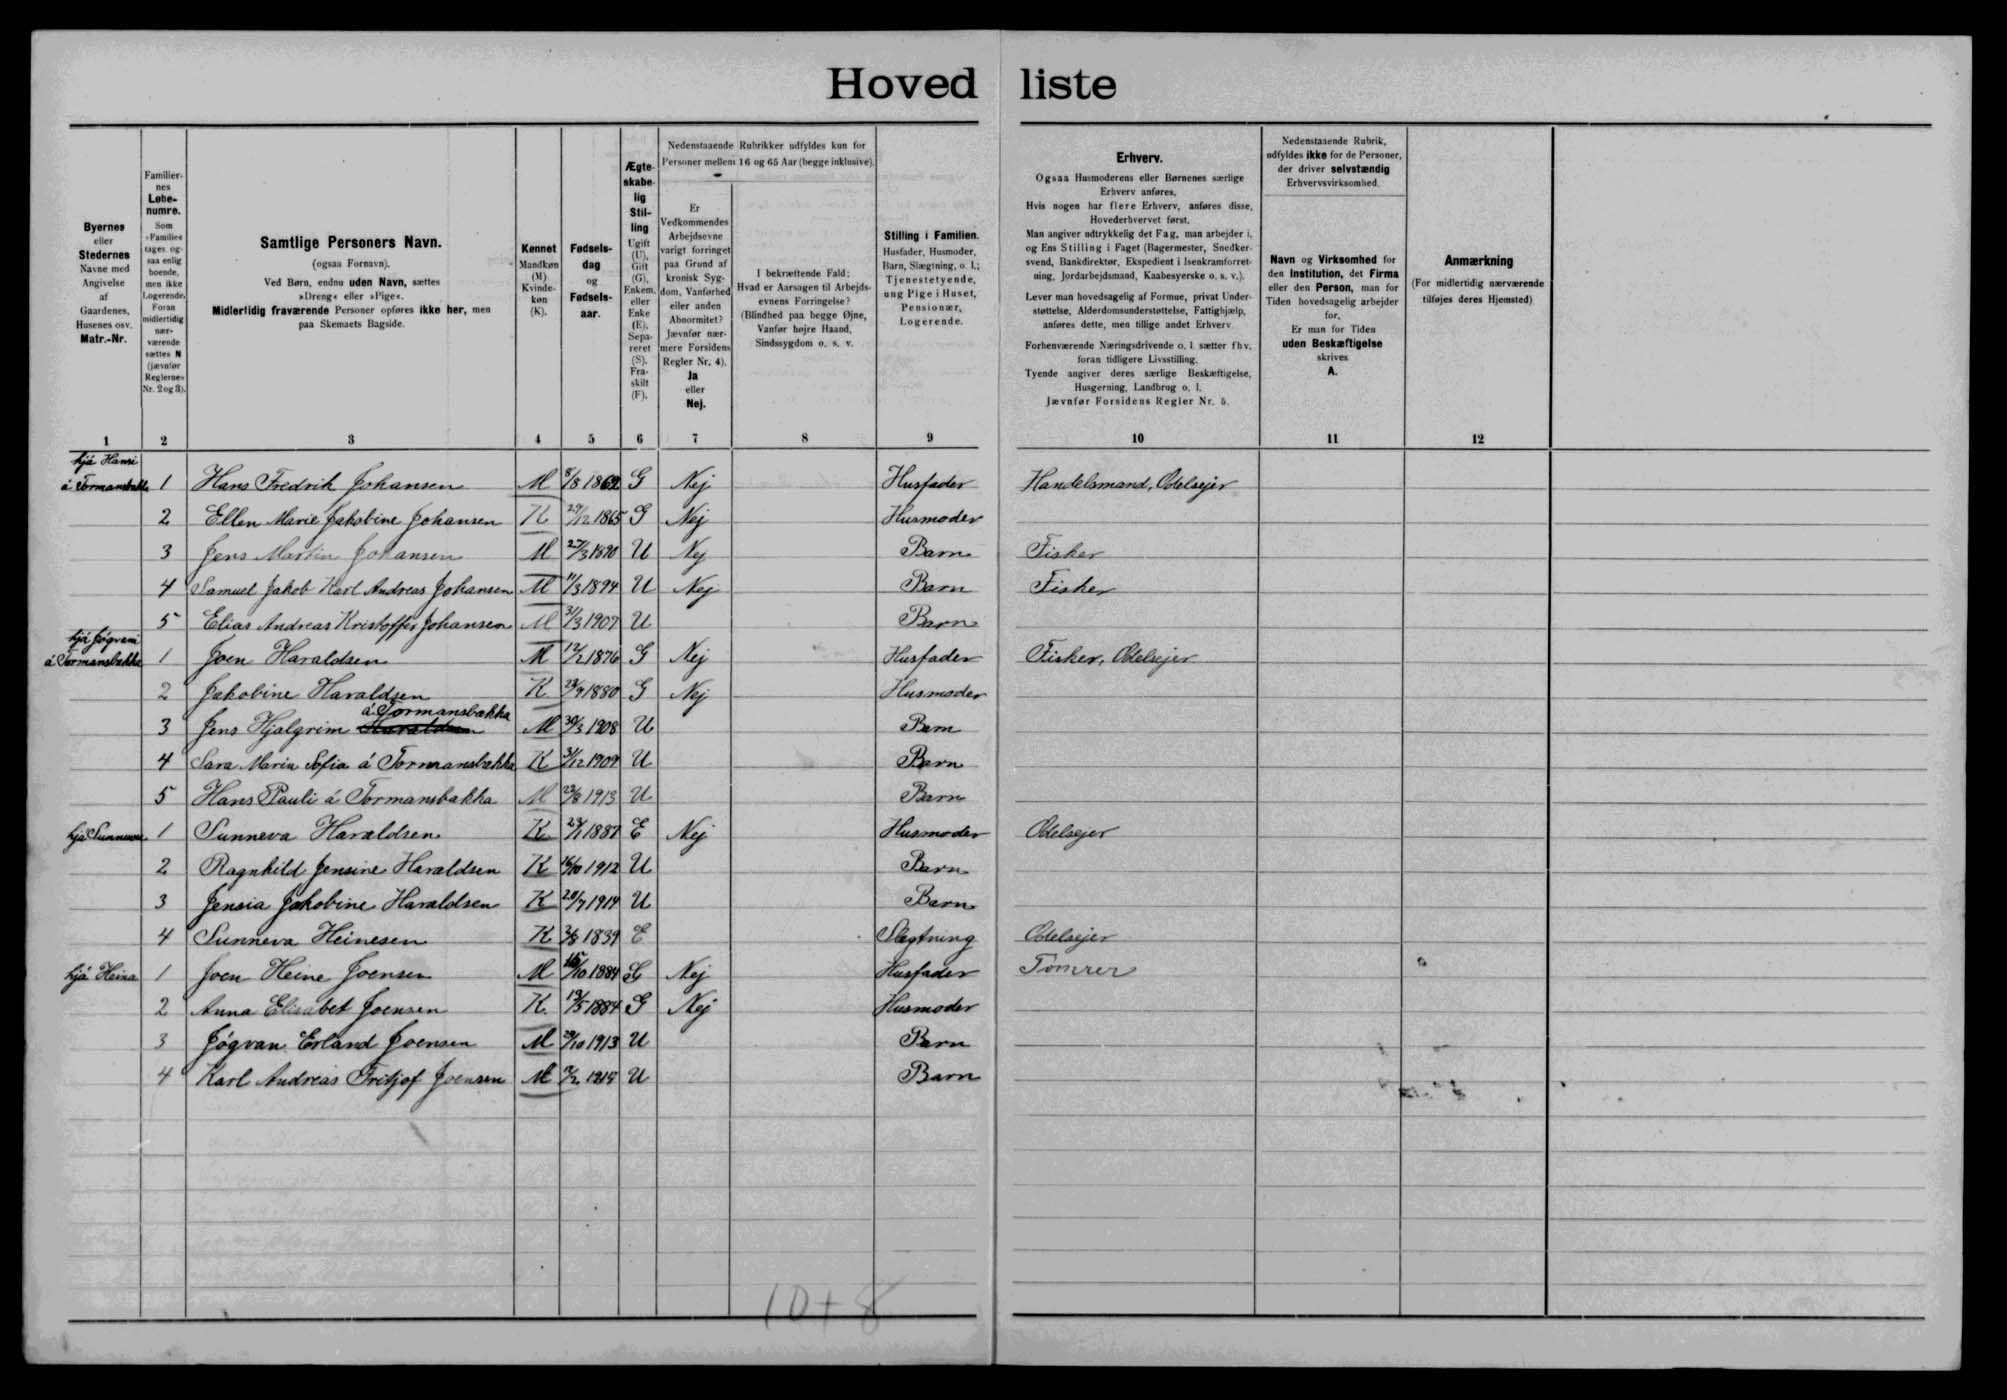 Hovedliste
Byernes eller Stedernes Navne med Angivelse af Gaardenes, Husenes osv. Matr.-Nr.
Familiernes Løbenumre. Som »Familie« tages ogsaa enlig boende, men ikke Logerende. Foran midlertidig nærværende sættes N (jævnfør Reglernes Nr. 2 og 3).
Samtlige Personers Navn.
(ogsaa Fornavn).
Ved Børn, endnu uden Navn, sættes »Dreng« eller »Pige«.
Midlertidig fraværende Personer opføres ikke her, men paa Skemaets Bagside.
Kønnet Mandkøn (M) Kvindekøn (K).
Fødselsdag og Fødselsaar.
Ægteskabelig Stilling Ugift (U), Gift (G), Enkem. eller Enke (E), Separeret (S), Fraskilt (F).
Nedenstaaende Rubrikker udfyldes kun for Personer mellem 16 og 65 Aar (begge inklusive).
Er Vedkommendes Arbejdsevne varigt forringet paa Grund af kronisk Sygdom, Vanførhed eller anden Abnormitet? Jævnfør nærmere Forsidens Regler Nr. 4). Ja eller Nej.
I bekræftende Fald: Hvad er Aarsagen til Arbejdsevnens Forringelse? (Blindhed paa begge Øjne, Vanfør højre Haand, Sindssygdom o. s. v.
Stilling i Familien. Husfader, Husmoder, Barn, Slægtning, o. l.; Tjenestetyende, ung Pige i Huset, Pensionær, Logerende.
Erhverv.
Ogsaa Husmoderens eller Børnenes særlige Erhverv anføres.
Hvis nogen har flere Erhverv, anføres disse, Hovederhvervet først.
Man angiver udtrykkelig det Fag, man arbejder i, og Ens Stilling i Faget (Bagermester, Snedkersvend, Bankdirektør, Ekspedient i Isenkramforretning, Jordarbejdsmand, Kaabesyerske o. s. v.).
Lever man hovedsagelig af Formue, privat Understøttelse, Alderdomsunderstøttelse, Fattighjælp, anføres dette, men tillige andet Erhverv.
Forhenværende Næringsdrivende o. l. sætter fhv. foran tidligere Livsstilling.
Tyende angiver deres særlige Beskæftigelse, Husgerning, Landbrug o. l.
Jævnfør Forsidens Regler Nr. 5.
Nedenstaaende Rubrik, udfyldes ikke for de Personer, der driver selvstændig Erhvervsvirksomhed.
Navn og Virksomhed for den Institution, det Firma eller den Person, man for Tiden hovedsagelig arbejder for.
Er man for Tiden uden Beskæftigelse skrives A.
Anmærkning
(For midlertidig nærværende tilføjes deres Hjemsted)
1 2 3 4 5 6 7 8 9 10 11 12
hjá Hansi
á Tormansbakka 1 Hans Fredrik Johansen M 8/8 1862 G Nej Husfader Handelsmand, Odelsejer
2 Ellen Marie Jakobine Johansen K 29/12 1865 G Nej Husmoder
3 Jens Martin Johansen M 27/3 1890 U Nej Barn Fisker
4 Samuel Jakob Karl Andreas Johansen M 11/3 1894 U Nej Barn Fisker
5 Elias Andreas Kristoffer Johansen M 31/3 1907 U Barn
hjá Jógvani
á Tormansbakka 1 Joen Haraldsen M 12/2 1876 G Nej Husfader Fisker, Odelsejer
2 Jakobine Haraldsen K 23/9 1880 G Nej Husmoder
á Tormansbakka
3 Jens Hjalgrim Haraldsen M 30/3 1908 U Barn
4 Sara Maria Sofia á Tormansbakka K 31/12 1909 U Barn
5 Hans Pauli á Tormansbakka M 23/8 1913 U Barn
hjá Sunnevu 1 Sunneva Haraldsen K 29/1 1887 E Nej Husmoder Odelsejer
2 Ragnhild Jensine Haraldsen K 16/10 1912 U Barn
3 Jensia Jakobine Haraldsen K 20/7 1914 U Barn
4 Sunneva Heinesen K 3/8 1839 E Slægtning Odelsejer
hjá Heina 1 Joen Heine Joensen M 15/10 1884 G Nej Husfader Tømrer
2 Anna Elisabet Joensen K 19/5 1884 G Nej Husmoder
3 Jógvan Erland Joensen M 29/10 1913 U Barn
4 Karl Andreas Fritjof Joensen M 1915 U Barn
10 + 8